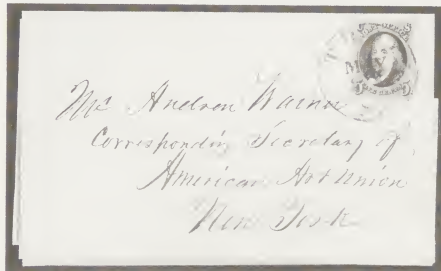 POST OFFICE
Mr Andrew Warner
Corresponding Secretary of
American Art Union
New York